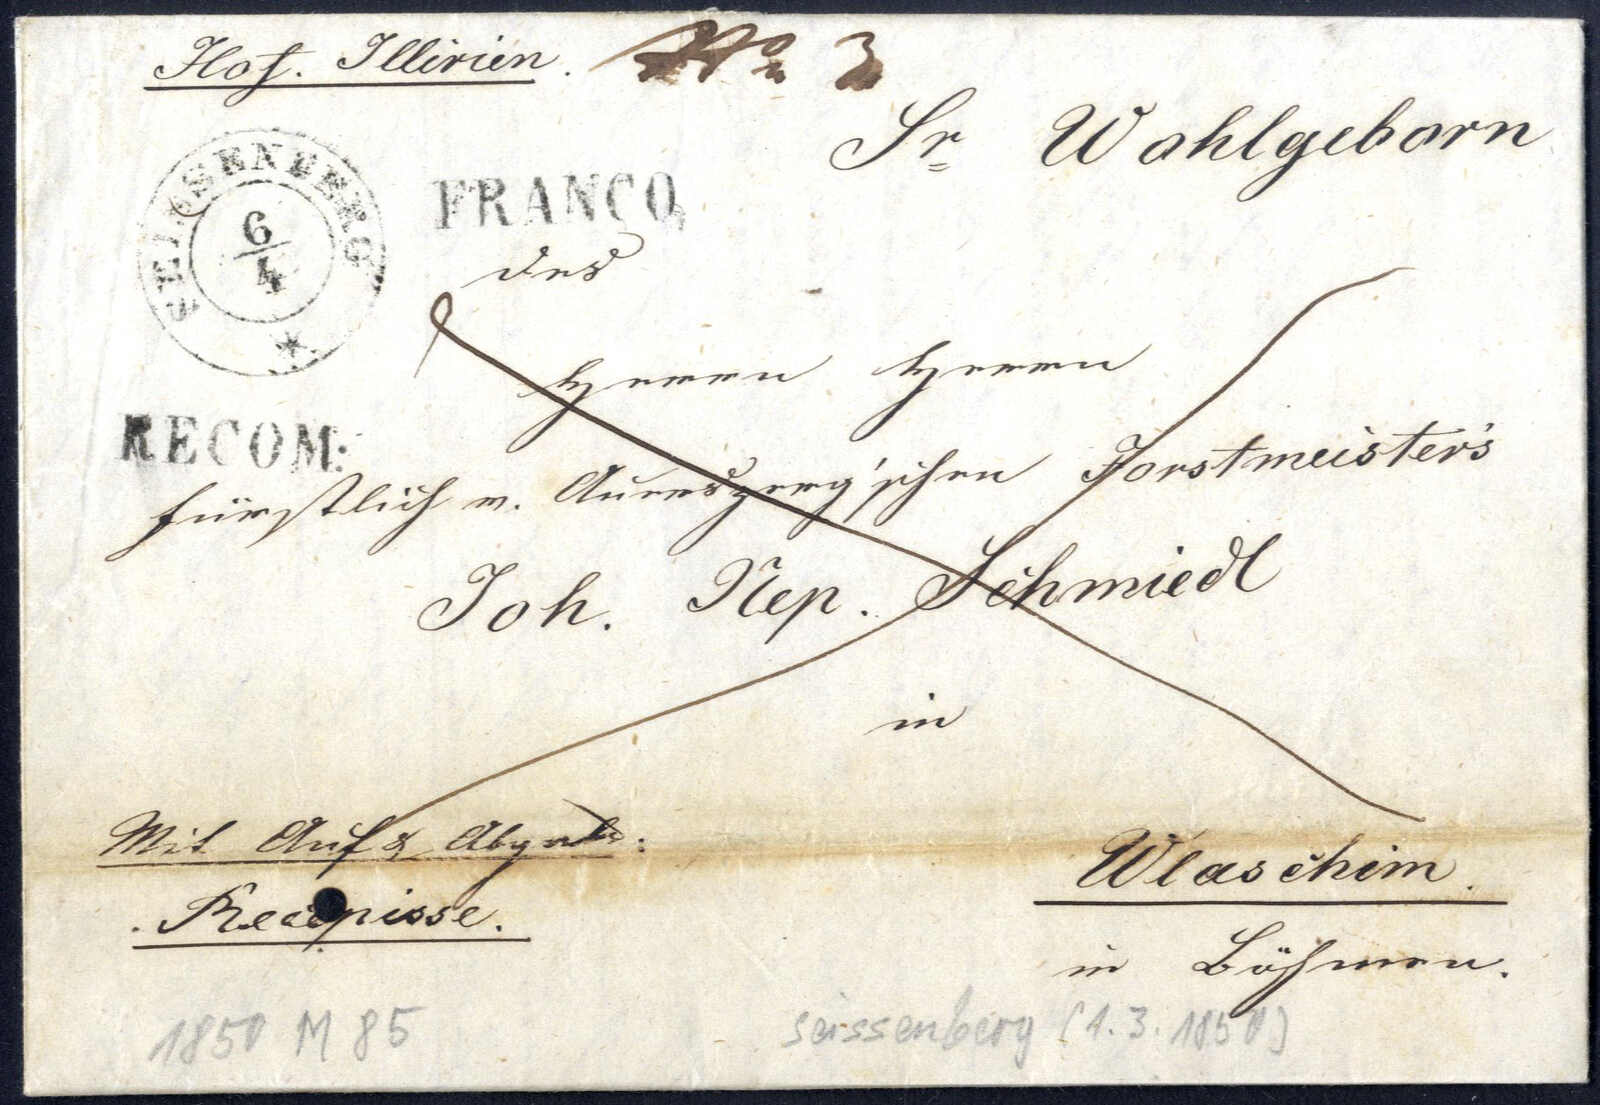 Hof. Illirien. No 3
Sr Wohlgeborn
SEISSENBERG
6/4
FRANCO.
des
RECOM:
Herrn Herrn
fürstlich v. Auersperg'schen Forstmeister's
Joh. Nep. Schmiedl
in
Mit Auf & Abgabs:
Recepisse.
Wlaschim.
in Böhmen.
1850 M 85
Seissenberg (1.3.1850)